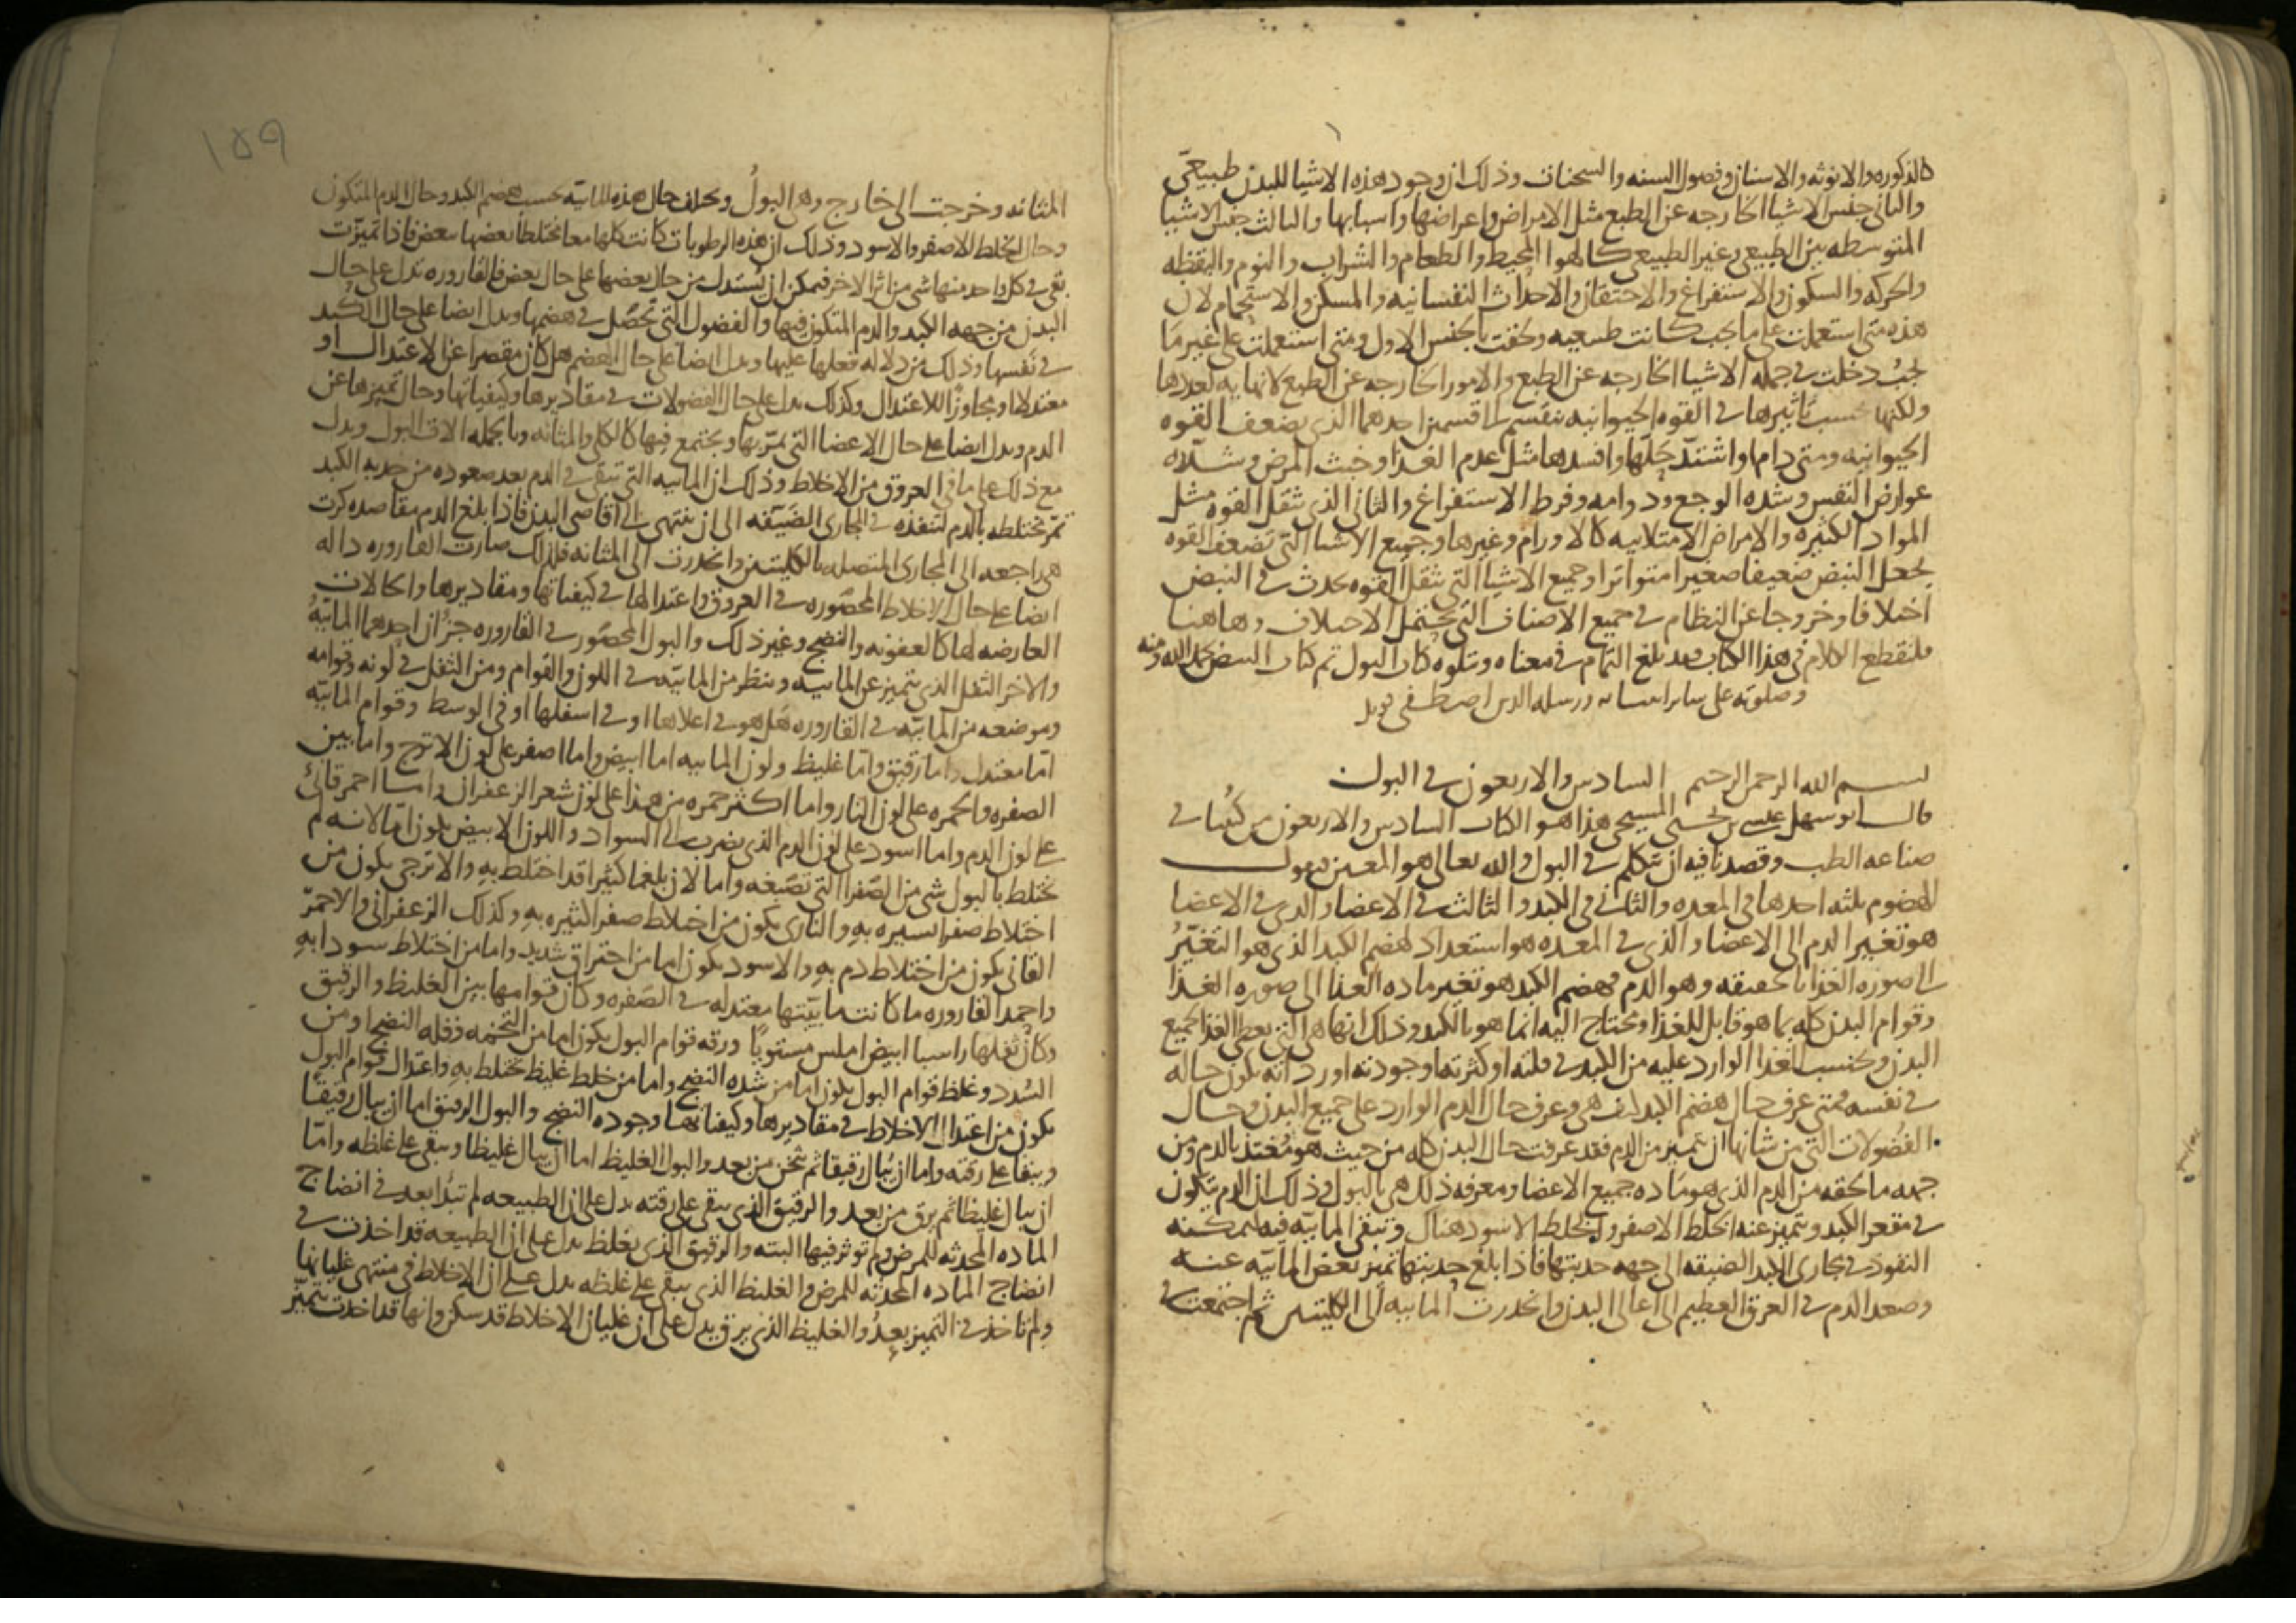 كالذكوره والانوثه والاسنان وفصول السنه والسحنات وذلك ان وجود هذه الاشيا للبدن طبيعى
والثانى جنس الاشيا الخارجه عن الطبع مثل الامراض واعراضها واسبابها والثالث جنس الاشيا
المتوسطه بين الطبيعى وغير الطبيعى كالهوا المحيط والطعام والشراب والنوم واليقظه
والحركه والسكون والاستفراغ والاحتقان والاحداث النفسانيه والمسكن والاستحمام لان
هذه متى استعملت على ما يجب كانت طبيعيه ولحقت بالجنس الاول ومتى استعملت على غير ما
يجب دخلت فى جمله الاشيا الخارجه عن الطبع والامور الخارجه عن الطبع لا نهايه لعددها
ولكنها بحسب تاثيرها فى القوه الحيوانيه تنقسم الى قسمين احدهما الذى يضعف القوه
الحيوانيه ومتى دام واشتد حلها وافسدها مثل عدم الغذا وخبث المرض وشده
عوارض النفس وشده الوجع ودوامه وفرط الاستفراغ والثانى الذى يثقل القوه مثل
المواد الكثيره والامراض الامتلاييه كالاورام وغيرها وجميع الاشيا التى تضعف القوه
يجعل النبض ضعيفا صغيرا متواترا وجميع الاشيا التى تثقل القوه يحدث فى النبض
اختلافا وخروجا عن النظام فى جميع الاصناف التى يحتمل الاختلاف وهاهنا
فلنقطع الكلام فى هذا الكتاب فقد بلغ التمام فى معناه وتتلوه كتاب البول تم كتاب النبض بحمد الله ومنه
وصلوته على ساير انبيايه ورسله الذين اصطفى
بسم الله الرحمن الرحيم السادس والاربعون فى البول
قال ابو سهل عيسى بن يحيى المسيحى هذا هو الكتاب السادس والاربعون من كتبنا فى
صناعه الطب وقصدنا فيه ان نتكلم فى البول والله تعالى هو المعين فنقول
الهضوم ثلثه احدها فى المعده والثانى فى الكبد والثالث فى الاعضا والذى فى الاعضا
هو تغيير الدم الى الاعضا والذى فى المعده هو استعداد لهضم الكبد الذى هو التغير
الى صوره الغذا بالحقيقه وهو الدم فهضم الكبد هو تغيير ماده الغذا الى صوره الغذا
وقوام البدن كله بما هو قابل للغذا ومحتاج اليه انما هو بالكبد وذلك انها هى التى تعطى الغذا لجميع
البدن وبحسب الغذا الوارد عليه من الكبد فى قلته او كثرته او جودته او رداته يكون حاله
فى نفسه فمتى عرف حال هضم الكبد كيف هى وعرف حال الدم الوارد على جميع البدن وحال
الفضولات التى من شانها ان تتميز من الدم فقد عرفت حال البدن كله من حيث هو مغتذ بالدم ومن
جهه ما لحقه من الدم الذى هو ماده جميع الاعضا ومعرفه ذلك هى بالبول وذلك ان الدم يتكون
فى مقعر الكبد ويتميز عنه الخلط الاصفر والخلط الاسود هناك وتبقى المائيه فيه ليمكنه
النفوذ فى مجارى الكبد الضيقه الى جهه حدبتها فاذا بلغ حدبتها تميز بعض المائيه عنه
وصعد الدم فى العرق العظيم الى اعالى البدن وانحدرت المائيه الى الكليتين ثم اجتمعت فى
١٥٩
المثانه وخرجت الى خارج وهى البول ويختلف حال هذه المائيه بحسب هضم الكبد وحال الدم المتكون
وحال الخلط الاصفر والاسود وذلك ان هذه الرطوبات كانت كلها معا مختلطا بعضها ببعض فاذا تميزت
بقى فى كل واحد منها شى من اثر الاخر فيمكن ان يستدل من حال بعضها على حال بعض فالقاروره تدل على حال
البدن من جهه الكبد والدم المتكون فيها والفضول التى تحصل فى هضمها ويدل ايضا على حال الكبد
فى نفسها وذلك من دلاله فعلها عليها ويدل ايضا على حال الهضم هل كان مقصرا عن الاعتدال او
معتدلا او مجاوزا للاعتدال وكذلك يدل على حال الفضولات فى مقاديرها وكيفياتها وحال تميزها عن
الدم ويدل ايضا على حال الاعضا التى يمر بها ويجتمع فيها كالكلى والمثانه وبالجمله الات البول ويدل
مع ذلك على ما فى العروق من الاخلاط وذلك ان المائيه التى تبقى فى الدم بعد صعوده من حدبه الكبد
تمر مختلطه بالدم لتنفذه فى المجارى الضيقه الى ان ينتهى الى اقاصى البدن فاذا بلغ الدم مقاصده كرت
هى راجعه الى المجارى المتصله بالكليتين وانحدرت الى المثانه فلذلك صارت القاروره داله
ايضا على حال الاخلاط المحصوره فى العروق واعتدالها فى كيفياتها ومقاديرها والحالات
العارضه لها كالعفونه والنضج وغير ذلك والبول المحصور فى القاروره جزان احدهما المائيه
والاخر الثفل الذى يتميز عن المائيه وينظر من المائيه فى اللون والقوام ومن الثفل فى لونه وقوامه
وموضعه من المائيه فى القاروره هل هو فى اعلاها او فى اسفلها او فى الوسط وقوام المائيه
اما معتدل واما رقيق واما غليظ ولون المائيه اما ابيض واما اصفر على لون الاترج واما بين
الصفره والحمره على لون النار واما اكثر حمره من هذا على لون شعر الزعفران واما احمر قانى
على لون الدم واما اسود على لون الدم الذى يضرب الى السواد واللون الابيض يكون اما لانه لم
يختلط بالبول شى من الصفرا التى تصبغه واما لان بلغما كثيرا قد اختلط به والاترجى يكون من
اختلاط صفرا يسيره به والنارى يكون من اختلاط صفرا كثيره به وكذلك الزعفرانى والاحمر
القانى يكون من اختلاط دم به والاسود يكون اما من احتراق شديد واما من اختلاط سودا به
واحمد القاروره ما كانت مائيتها معتدله فى الصفره وكان قوامها بين الغليظ والرقيق
وكان ثفلها راسبا ابيض املس مستويا ورقه قوام البول يكون اما من التخمه وقله النضج او من
السدد وغلظ قوام البول يكون اما من شده النضج واما من خلط غليظ يختلط به واعتدال قوام البول
يكون من اعتدال الاخلاط فى مقاديرها وكيفياتها وجوده النضج والبول الرقيق اما ان يبال رقيقا
ويبقا على رقته واما ان يبال رقيقا ثم يثخن من بعد والبول الغليظ اما ان يبال غليظا ويبقى على غلظه واما
ان يبال غليظا ثم يرق من بعد والرقيق الذى يبقى على رقته يدل على ان الطبيعه لم تبدا بعد فى انضاج
الماده المحدثه للمرض ولم توثر فيها البته والرقيق الذى يغلظ يدل على ان الطبيعه قد اخذت فى
انضاج الماده المحدثه للمرض والغليظ الذى يبقى على غلظه يدل على ان الاخلاط فى منتهى غليانها
ولم تاخذ فى التميز بعد والغليظ الذى يرق يدل على ان غليان الاخلاط قد سكن وانها قد اخذت تتميز